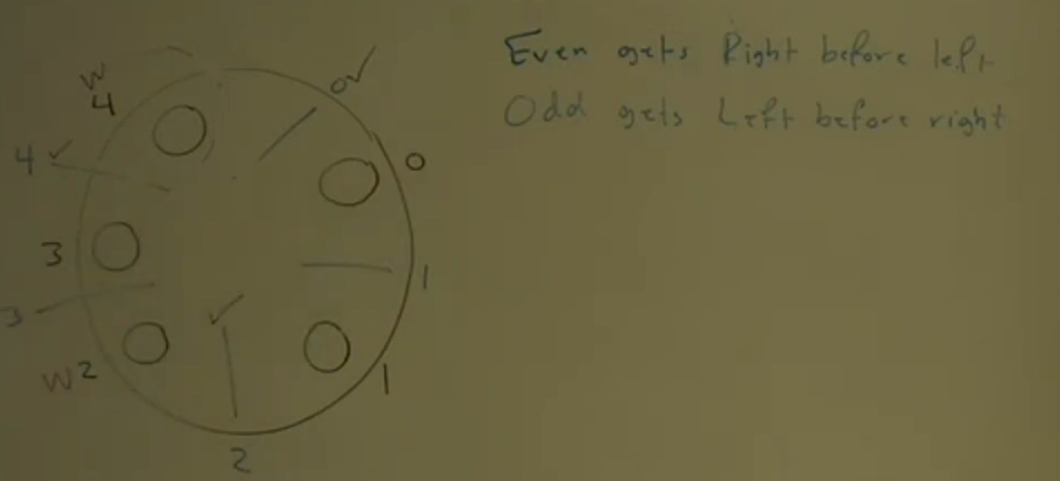 Even gets Right before left
Odd gets Left before right
W
4
0
4
0
3
1
3
W 2
1
2